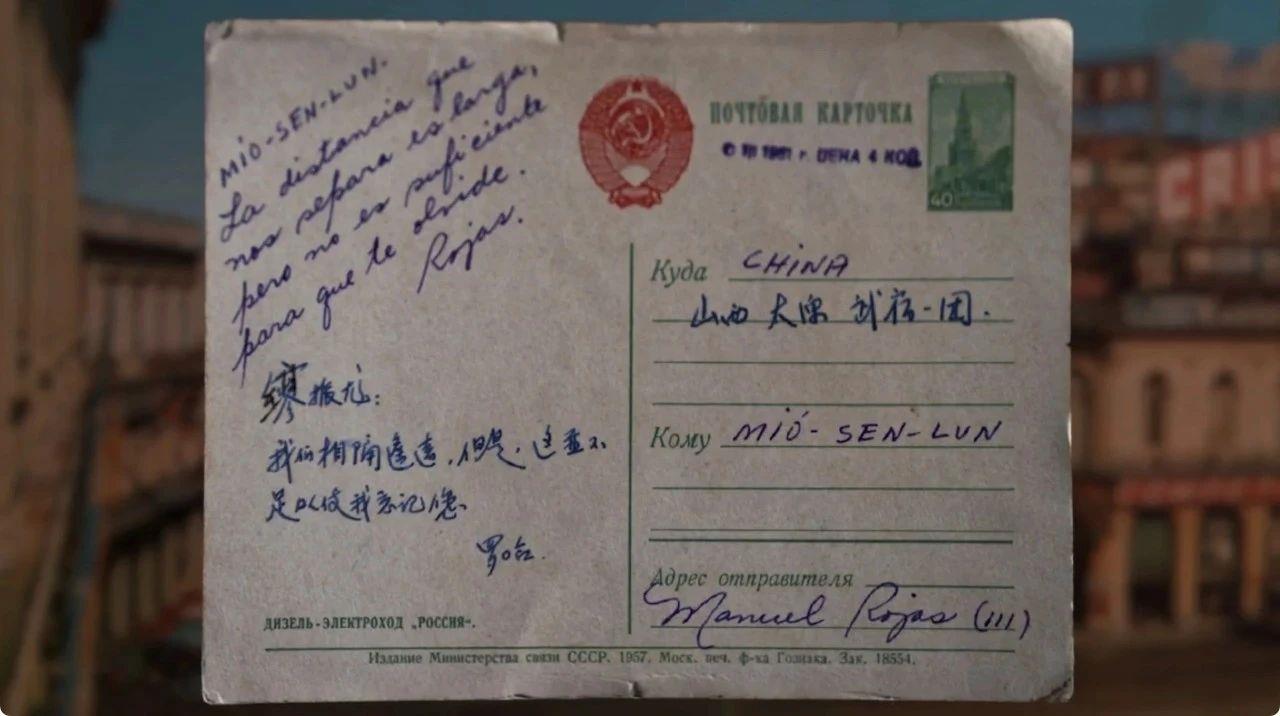 MIÓ-SEN-LUN.
La distancia que
nos separa es larga,
pero no es suficiente
para que te olvide.
Rojas.
缪振龙:
我们相隔遥远,但是,这并不
足以使我忘记您.
罗哈.
ДИЗЕЛЬ-ЭЛЕКТРОХОД „РОССИЯ“.
ПОЧТОВАЯ КАРТОЧКА
ЦЕНА 4 КОП.
40
Куда CHINA
山西 太原 武宿一团.
Кому MIÓ-SEN-LUN
Адрес отправителя
Manuel Rojas (III)
Издание Министерства связи СССР. 1957. Моск. печ. ф-ка Гознака. Зак. 18554.